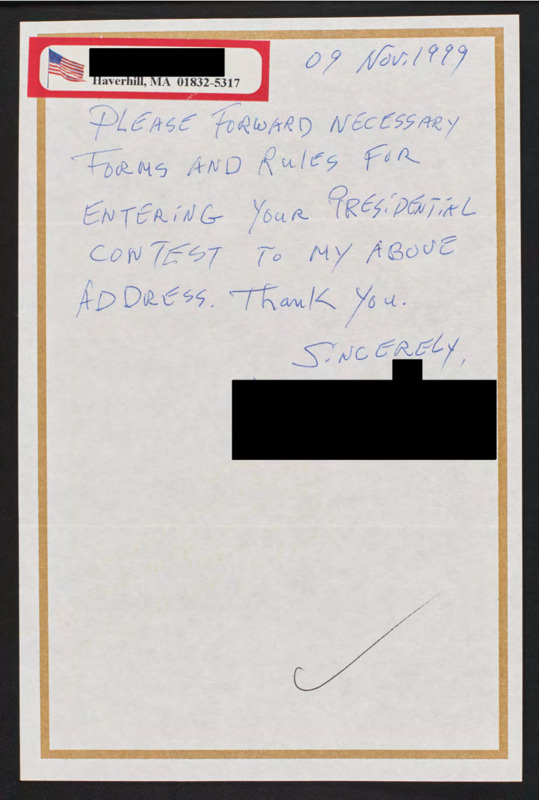 Haverhill, MA 01832-5317
09 Nov. 1999
PLEASE FORWARD NECESSARY
FORMS AND RULES FOR
ENTERING YOUR PRESIDENTIAL
CONTEST TO MY ABOVE
ADDRESS. Thank You.
SINCERELY,